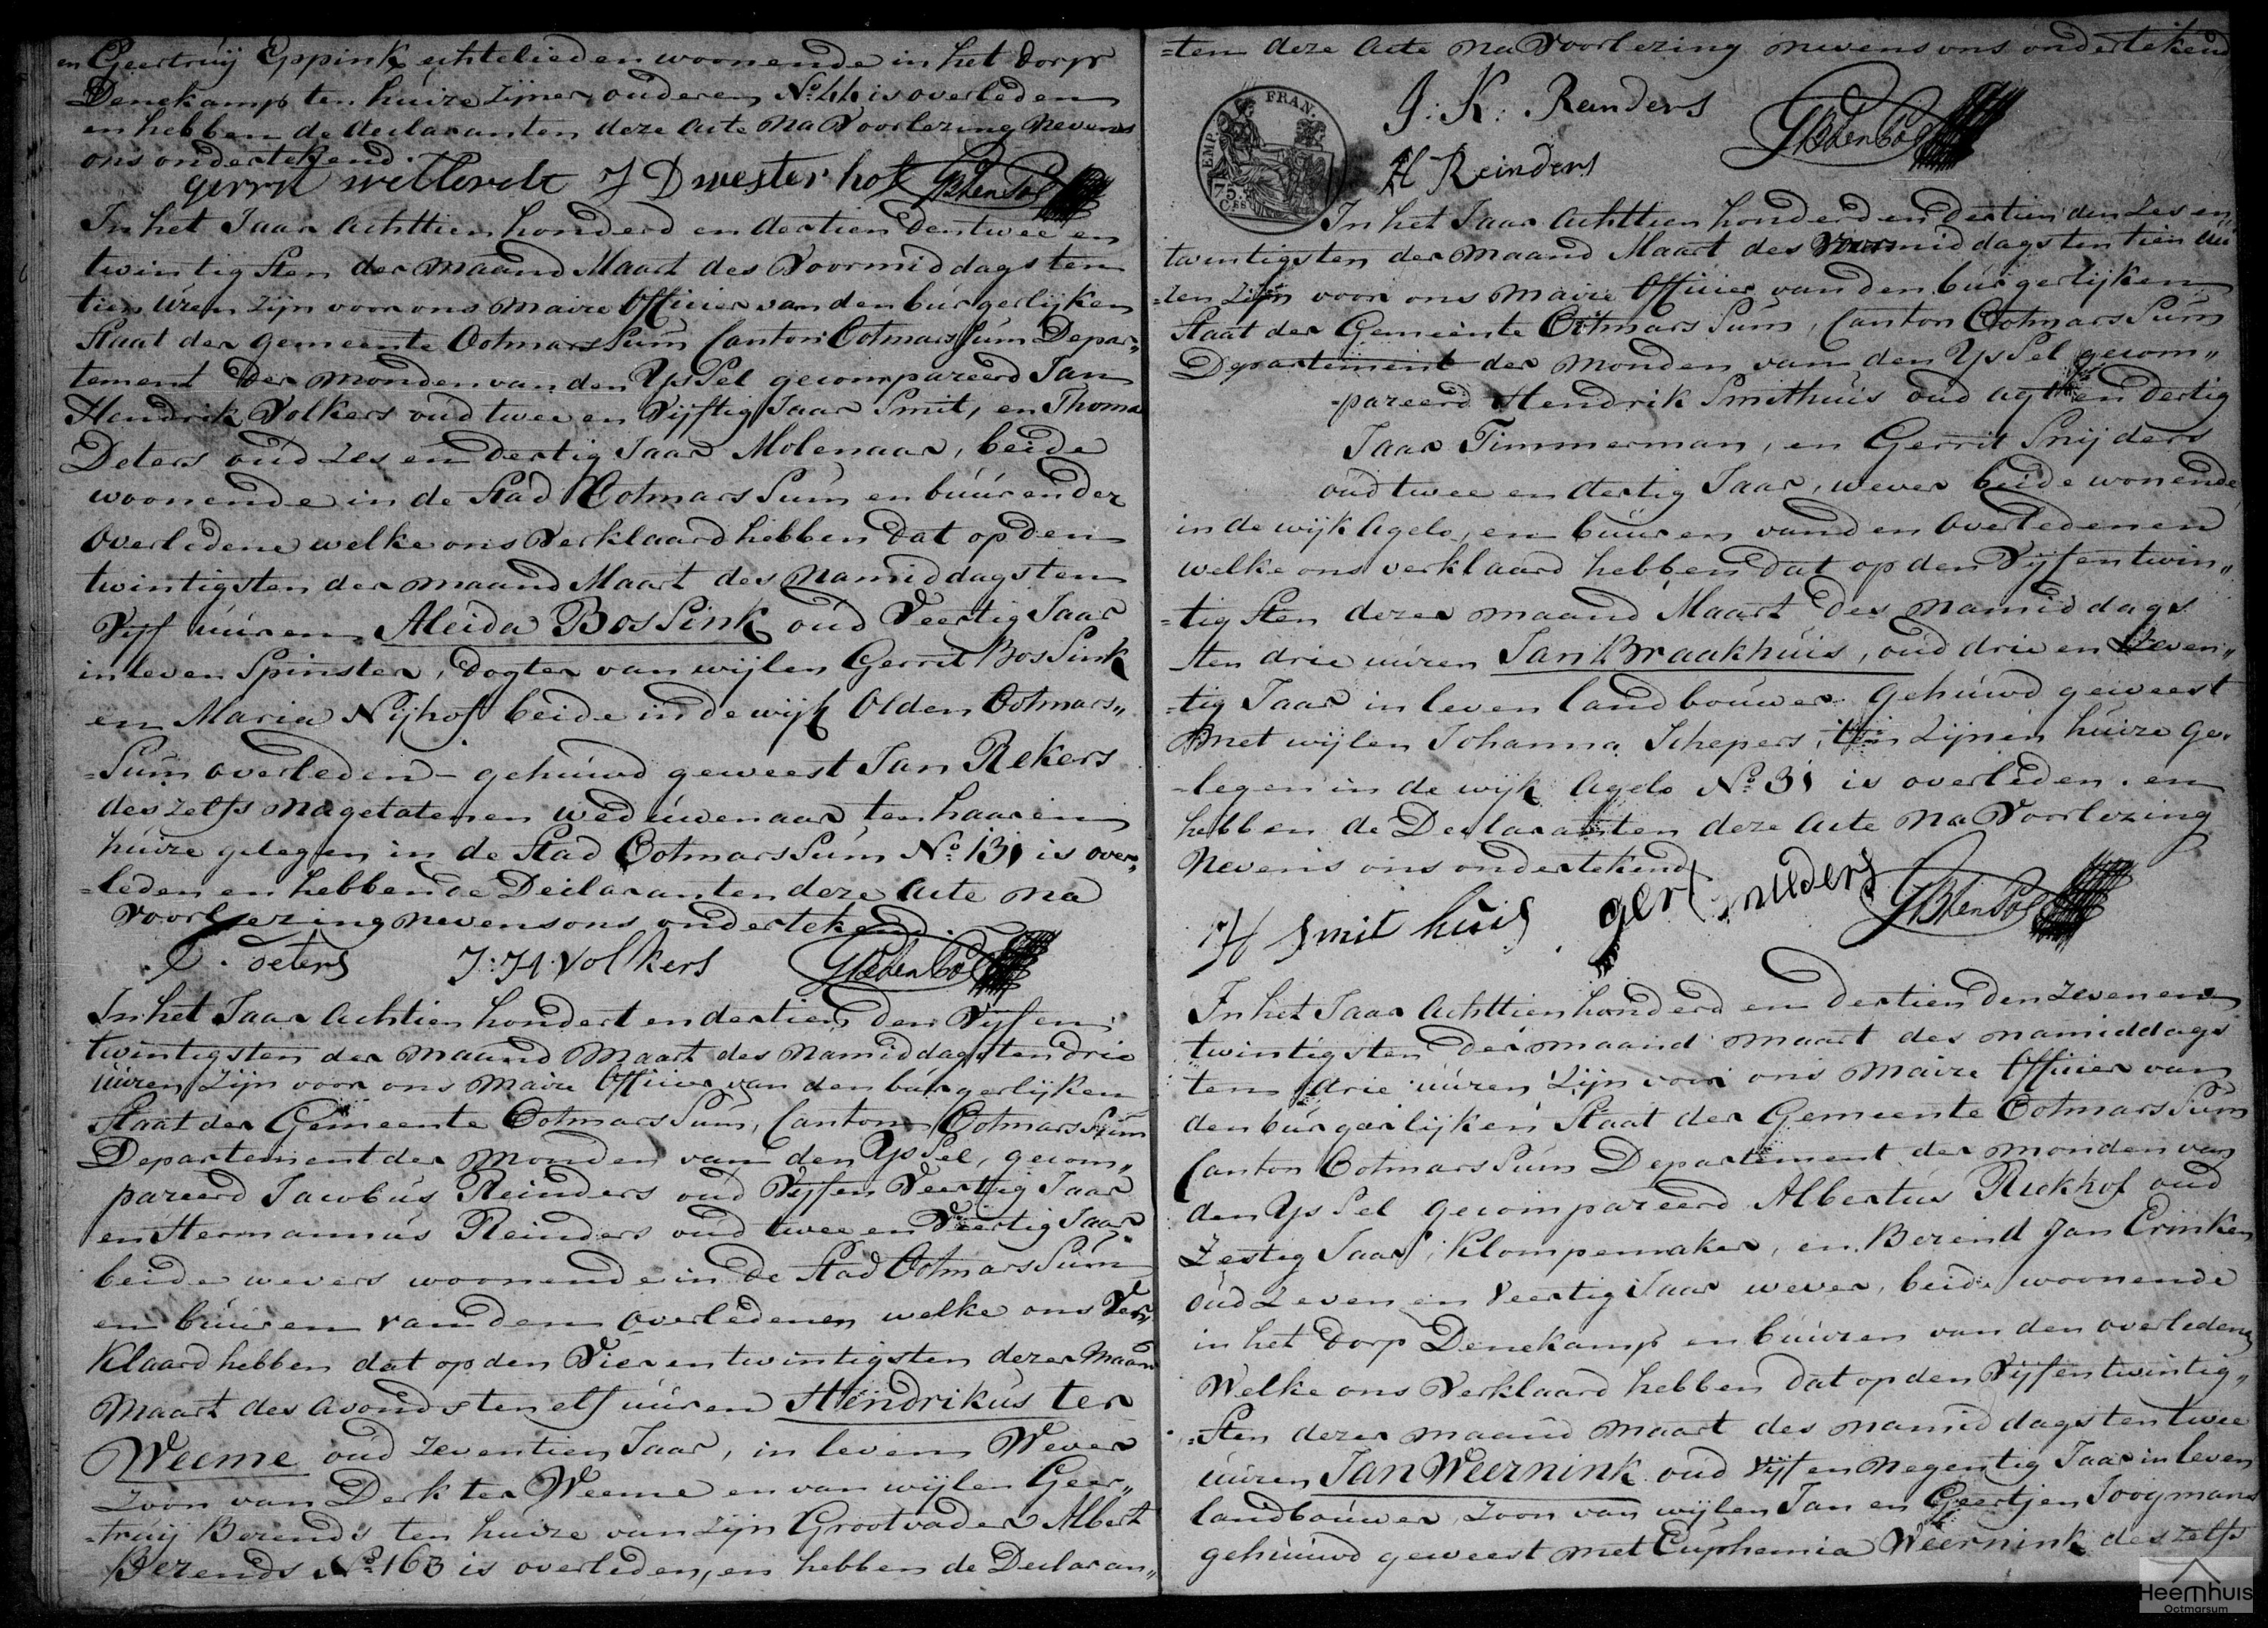 en Geertruij Eppink echtelieden woonende in het dorp
Denekamp ten huize zijner ouderen No 44 is overleden
en hebben de declaranten deze acte na voorlezing nevens
ons ondertekend.
gerrit J D westerhof
In het Jaar achttien honderd en dertien den twee en
twintigsten der maand Maart des voormiddags ten
tien uren zijn voor ons maire officier van den burgerlijken
Staat der gemeente Ootmarssum Canton Ootmarssum Depar„
tement der monden van den Yssel gecompareerd Jan
Hendrik Volkers oud twee en vijftig Jaar Smit, en Thoma
Deters oud zes en dertig Jaar Molenaar, beide
woonende in de Stad Ootmarssum en buuren der
overledene welke ons verklaard hebben dat op den
twintigsten der maand Maart des namiddags ten
vijf uuren Aleida Bossink oud veertig Jaar
in leven Spinster, dogter van wijlen Gerrit Bossink
en Maria Nijhof beide in de wijk Olden Ootmars„
=sum overleden - gehuwd geweest Jan Rekers
deszelfs nagelatenen weduwenaar ten haaren
huize gelegen in de Stad Ootmarssum No 131 is over„
=leden en hebben de Declaranten deze acte na
voorlezing nevens ons ondertekend.
Deters J: H: Volkers
In het Jaar achtien hondert en dertien den vijf en
twintigsten der maand Maart des namiddags ten drie
uuren zijn voor ons maire officier van den burgerlijken
Staat der Gemeente Ootmarssum, Canton Ootmarssum
Departement der monden van den Yssel, gecom„
pareerd Jacobus Reinders oud vijf en veertig Jaar
en Hermannus Reinders oud twee en veertig Jaar
beide wevers woonende in de Stad Ootmarssum
en buuren van den overledenen welke ons ver„
klaard hebben dat op den vier en twintigsten dezer maand
Maart des avonds ten elf uuren Hendrikus ter
Weeme oud zeventien Jaar, in leven Wever
zoon van Derk ter Weeme en van wijlen Geer„
=truij Berends ten huize van zijn Grootvader Albert
Berends No 163 is overleden, en hebben de Declaran„
=ten deze acte na voorlezing nevens ons ondertekend
EMP. FRAN.
75 CES
J: K: Renders
H Reinders
In het Jaar achttien honderd en dertien den zes en
twintigsten der maand Maart des voormiddags ten tien uu
=ren zijn voor ons maire officier van den burgerlijken
Staat der Gemeente Ootmarssum, Canton Ootmarssum
Departement der monden van den Yssel gecom„
=pareerd Hendrik Smithuis oud agt en dertig
Jaar Timmerman, en Gerrit Snijders
oud twee en dertig Jaar, wever beide wonende
in de wijk Agelo, en buuren van den overledenen
welke ons verklaard hebben dat op den vijf en twin„
=tigsten dezer maand Maart des namiddags
ten drie uuren Jan Braakhuis, oud drie en zeven„
=tig Jaar in leven landbouwer gehuwd geweest
met wijlen Johanna Schepers, in zijnen huize ge„
=legen in de wijk Agelo No 31 is overleden. en
hebben de Declaranten deze acte na voorlezing
nevens ons ondertekend
H smit huis gert snieders
In het Jaar achttien honderd en dertien den zeven en
twintigsten der maand maart des namiddags
ten drie uuren zijn voor ons maire officier van
den burgerlijken Staat der Gemeente Ootmarssum
Canton Ootmarssum Departement der monden van
den Yssel gecompareerd Albertus Rickhof oud
zestig Jaar, klompemaker, en Berend Jan Erinken
oud zeven en veertig Jaar wever, beide woonende
in het dorp Denekamp en buuren van den overledene
welke ons verklaard hebben dat op den vijf en twintig„
=sten dezer maand maart des namiddags ten twee
uuren Jan Weernink oud vijf en negentig Jaar in leven
landbouwer, zoon van wijlen Jan en Geertjen Jooymans
gehuuwd geweest met Euphemia Weernink deszelfs
Heemhuis
Ootmarsum